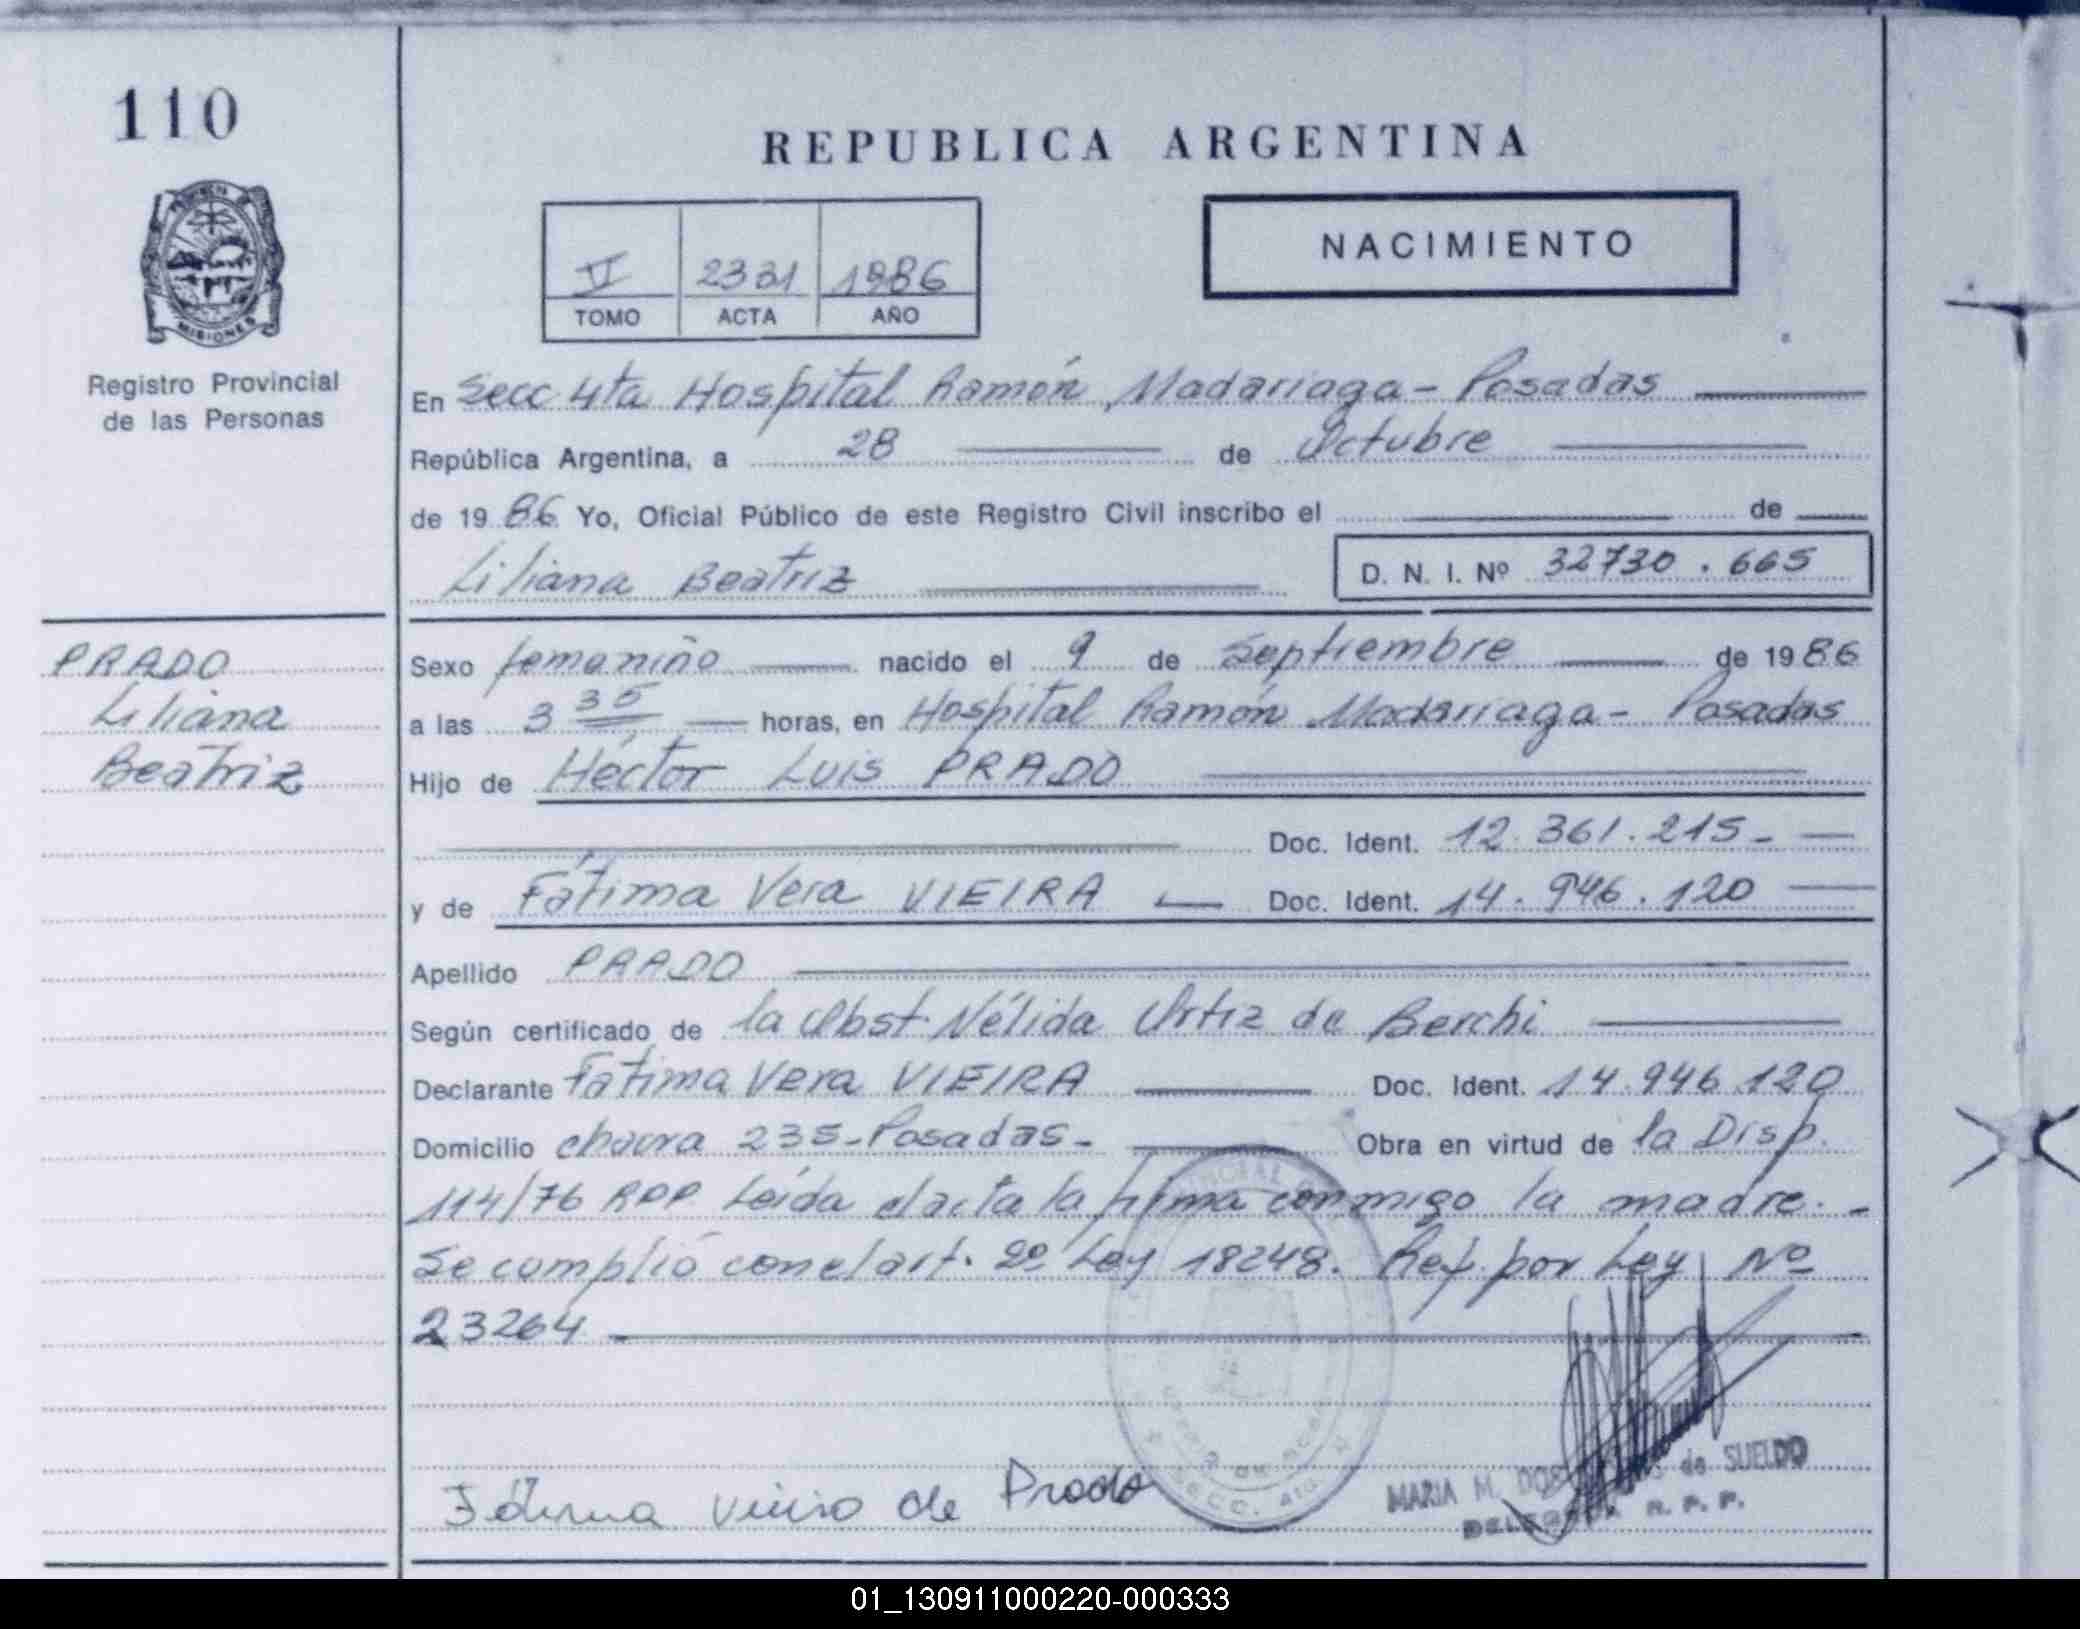 110
REPUBLICA ARGENTINA
NACIMIENTO
V 2331 1986
TOMO ACTA AÑO
MISIONES
Registro Provincial
de las Personas
En Secc 4ta Hospital Ramón Madariaga - Posadas
República Argentina, a 28 de Octubre
de 1986 Yo, Oficial Público de este Registro Civil inscribo el de
Liliana Beatriz D. N. I. Nº 32730.665
PRADO
Liliana
Beatriz
Sexo femenino nacido el 9 de Septiembre de 1986
a las 3 35 horas, en Hospital Ramón Madariaga - Posadas
Hijo de Héctor Luis PRADO
Doc. Ident. 12.361.215-
y de Fátima Vera VIEIRA Doc. Ident. 14.946.120
Apellido PRADO
Según certificado de la Obst. Nélida Ortiz de Berchi
Declarante Fátima Vera VIEIRA Doc. Ident. 14.946.120
Domicilio chacra 235-Posadas- Obra en virtud de la Disp.
114/76 RPP. Leída el acta la firma conmigo la madre.-
Se cumplió con el art. 2º Ley 18248. Ref. por Ley Nº
23264
Fátima Vieira de Prado
SECC. 4ta
MARIA M. de SUELDO
DELEGADA R. P. P.
01_130911000220-000333